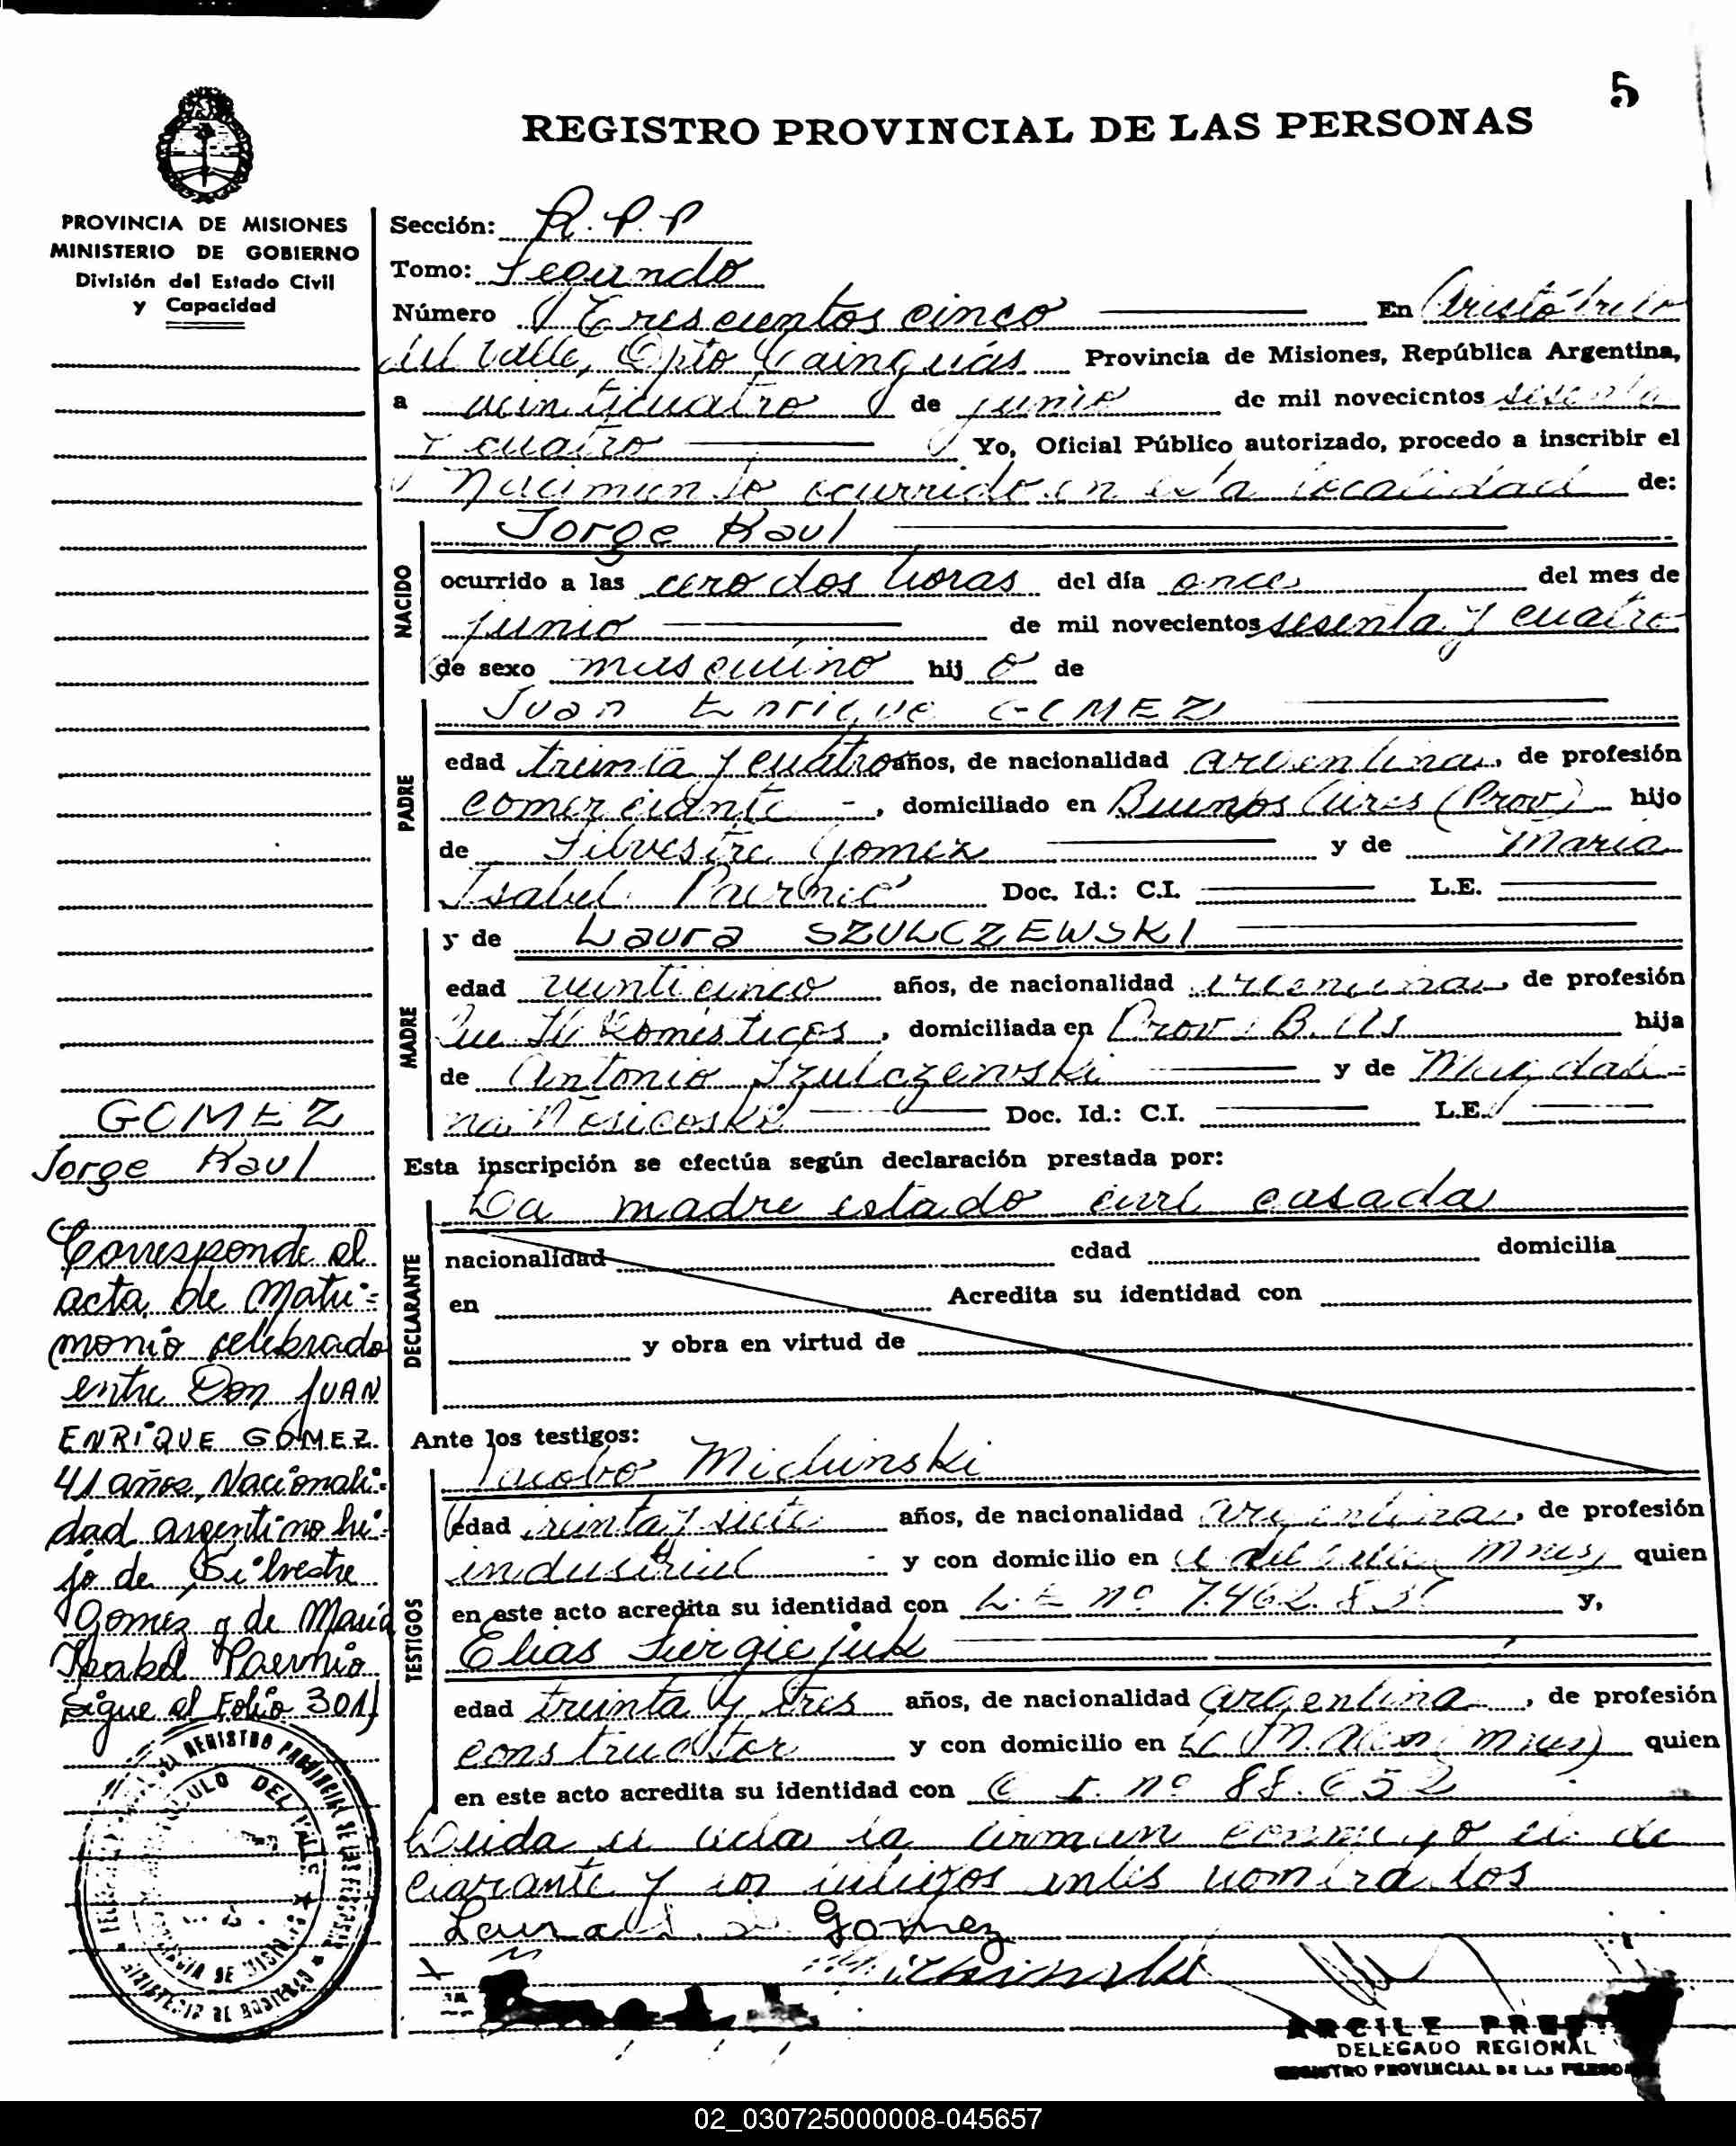 5
REGISTRO PROVINCIAL DE LAS PERSONAS
PROVINCIA DE MISIONES
MINISTERIO DE GOBIERNO
División del Estado Civil
y Capacidad
Sección: R.P.P
Tomo: Segundo
Número Trescientos cinco En Aristóbulo
del Valle, Dpto Cainguás Provincia de Misiones, República Argentina,
a veinticuatro de junio de mil novecientos sesenta
y cuatro Yo, Oficial Público autorizado, procedo a inscribir el
Nacimiento ocurrido en esta localidad de:
NACIDO
Jorge Raul
ocurrido a las cero dos horas del día once del mes de
junio de mil novecientos sesenta y cuatro
de sexo masculino hij o de
PADRE
Juan Enrique GOMEZ
edad treinta y cuatro años, de nacionalidad argentina, de profesión
comerciante -, domiciliado en Buenos Aires (Prov) hijo
de Silvestre Gomez y de Maria
Isabel Doc. Id.: C.I. L.E.
MADRE
y de Laura SZULCZEWSKI
edad veinticinco años, de nacionalidad argentina, de profesión
Que H Domesticos, domiciliada en Prov. B. As hija
de Antonio Szulczewski y de Magdale-
na Doc. Id.: C.I. L.E.
Esta inscripción se efectúa según declaración prestada por:
DECLARANTE
La madre estado civil casada
nacionalidad edad domicilia
en Acredita su identidad con
y obra en virtud de
Ante los testigos:
TESTIGOS
Jacobo Michinski
edad treinta y siete años, de nacionalidad argentina, de profesión
industrial y con domicilio en A del Valle Mnes) quien
en este acto acredita su identidad con L.E nº y,
Elias Sergiejuk
edad treinta y tres años, de nacionalidad argentina, de profesión
constructor y con domicilio en Mnes) quien
en este acto acredita su identidad con C I. nº 88.652
Leida el acta la firman conmigo el de
clarante y los testigos antes nombrados
Laura S. de Gomez
Michinski
DELEGADO REGIONAL
REGISTRO PROVINCIAL DE LAS PERSO
GOMEZ
Jorge Raul
Corresponde al
acta de Matri=
monio celebrado
entre Don JUAN
ENRIQUE GOMEZ.
41 años, Nacionali=
dad argentino hi=
jo de Silvestre
Gomez y de María
Isabel
Sigue al Folio 301)
REGISTRO PROVINCIAL DE LAS PERSONAS
MINISTERIO DE GOBIERNO
DEL VALLE
02_030725000008-045657